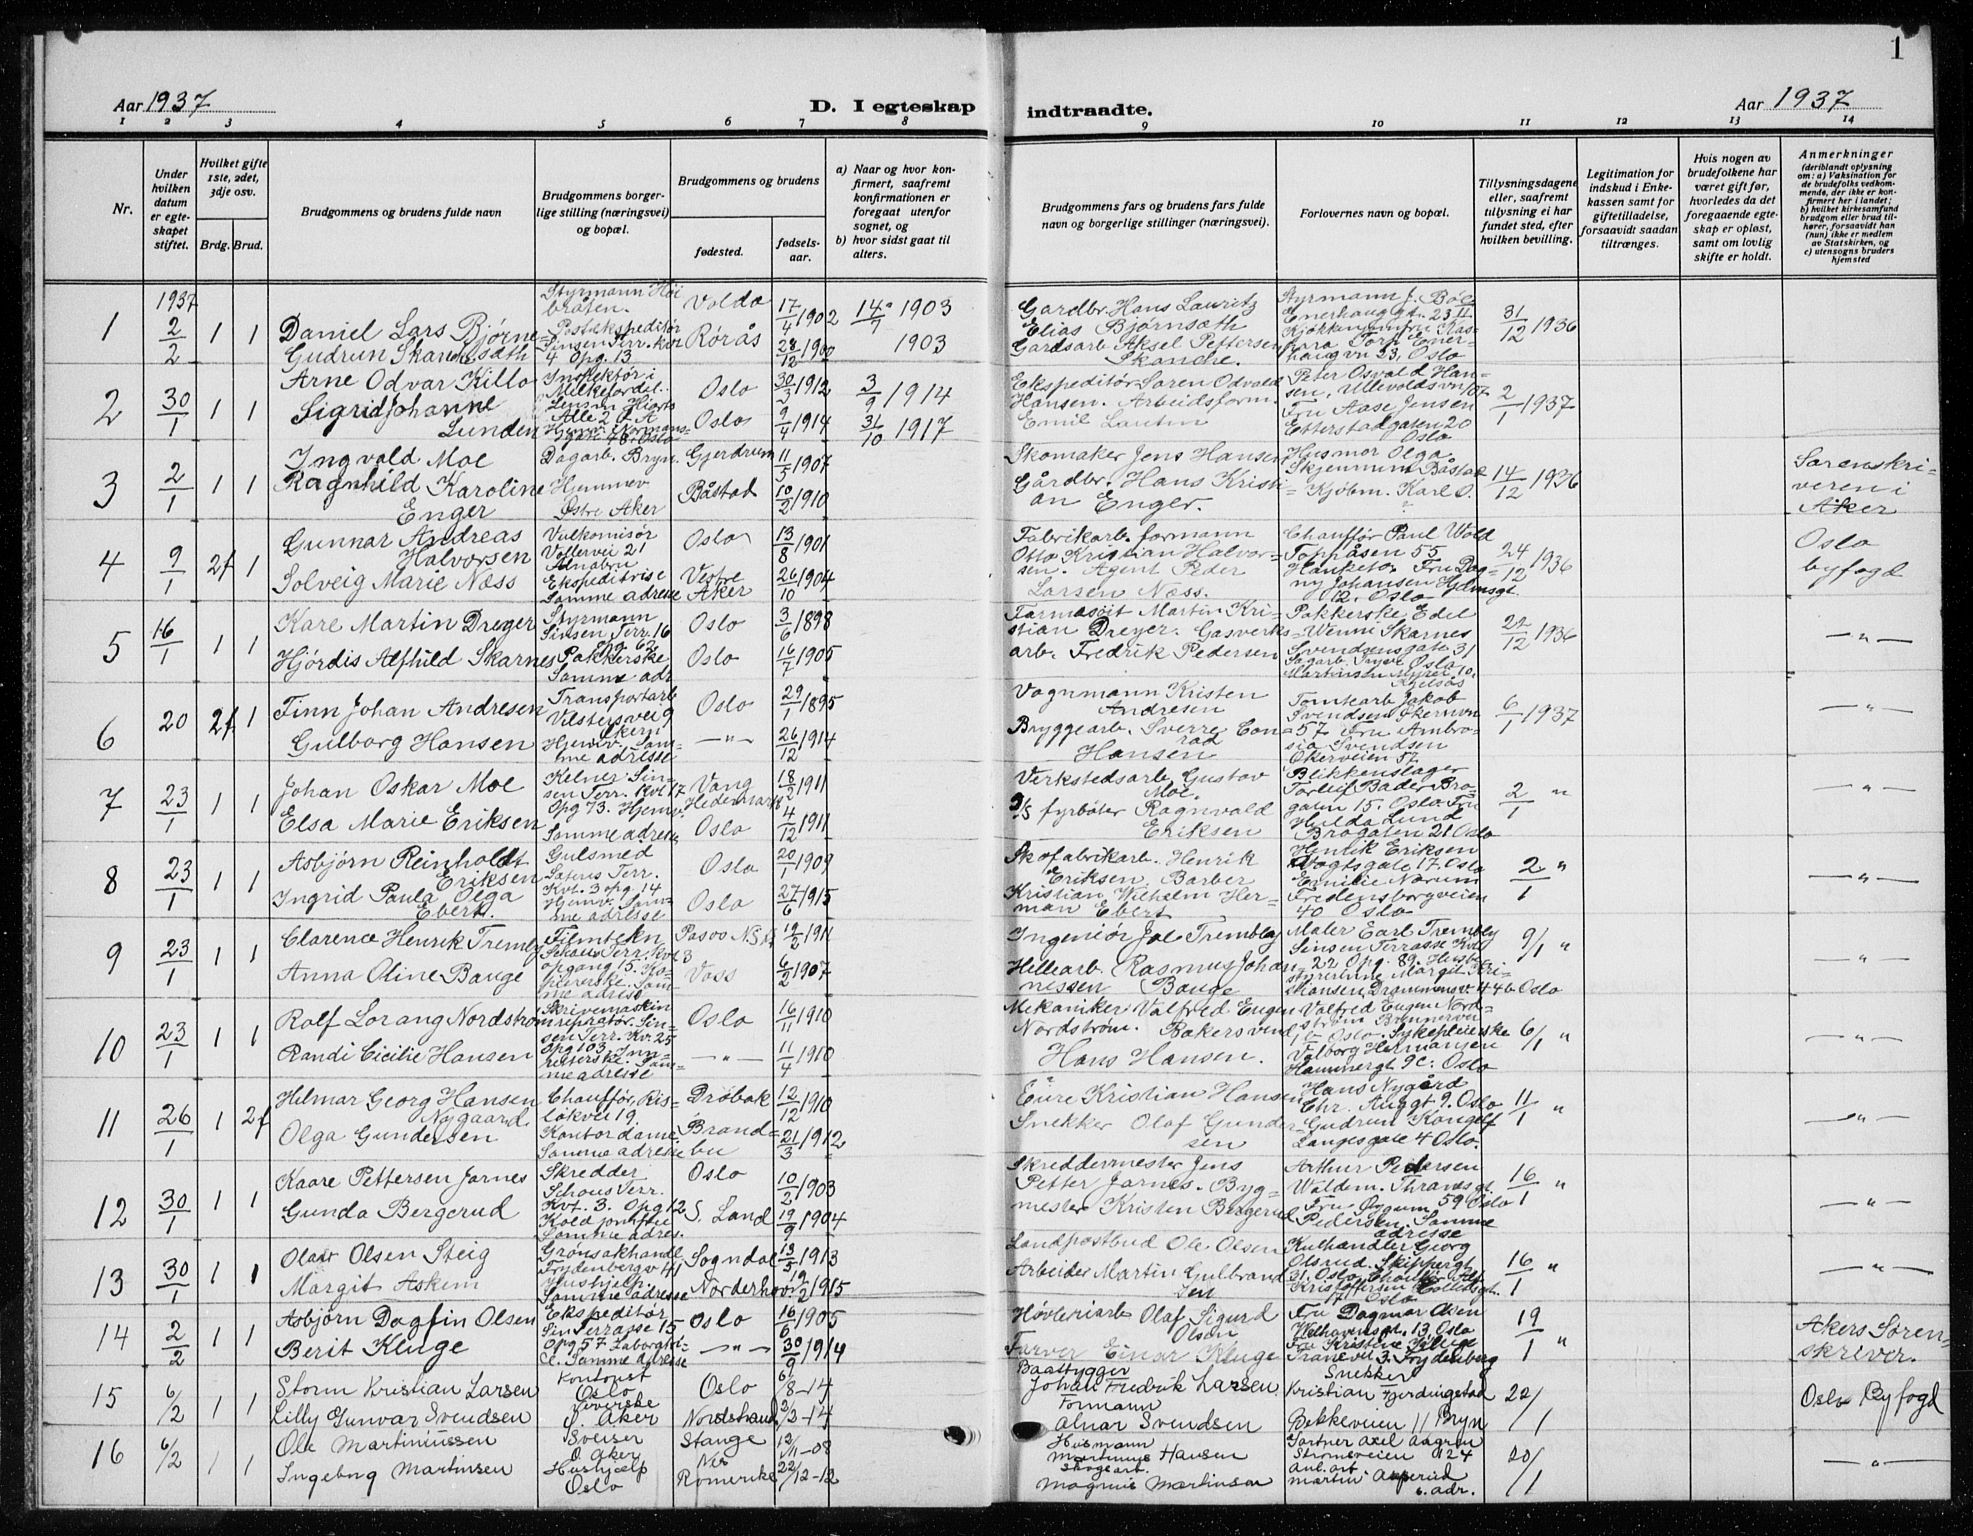 1
Aar 1937
D. I egteskap
indtraadte.
Aar 1937
1 2 3 4 5 6 7 8 9 10 11 12 13 14
Nr.
Under hvilken datum er egteskapet stiftet.
Hvilket gifte 1ste, 2det, 3dje osv.
Brdg. Brud.
Brudgommens og brudens fulde navn
Brudgommens borgerlige stilling (næringsvei) og bopæl.
Brudgommens og brudens
fødested.
fødselsaar.
a) Naar og hvor konfirmert, saafremt konfirmationen er foregaat utenfor sognet, og
b) hvor sidst gaat til alters.
Brudgommens fars og brudens fars fulde navn og borgerlige stillinger (næringsvei).
Forlovernes navn og bopæl.
Tillysningsdagene eller, saafremt tillysning ei har fundet sted, efter hvilken bevilling.
Legitimation for indskud i Enkekassen samt for giftetilladelse, forsaavidt saadan tiltrænges.
Hvis nogen av brudefolkene har været gift før, hvorledes da det foregaaende egteskap er opløst, samt om lovlig skifte er holdt.
Anmerkninger
(deriblandt oplysning om: a) Vaksination for de brudefolks vedkommende, der ikke er konfirmert her i landet; b) hvilket kirkesamfund brudgom eller brud tilhører, forsaavidt han (hun) ikke er medlem av Statskirken, og c) utensogns bruders hjemsted
1937
1 2/2 1 1
Daniel Lars Bjørnesæth
Gudrun Skancke
Styrmann Høibråten.
Postekspeditør Sinsen Terr. kv. 4 Opg. 13
Volda 17/4 1902 14/7 1903
Rørås 28/12 1900 1903
Gardbr. Hans Lauritz Elias Bjørnsæth
Gardsarb. Aksel Pettersen Skancke.
Styrmann J. Bøe
Enerhauggt. 23 II
31/12 1936
2 30/1 1 1
Arne Odvar Killo
Sigrid Johanne Lunden
Inspektør i Melkefordel.
Oslo 30/3 1912 3/9 1914
Oslo 9/4 1914 31/10 1917
Ekspeditør Søren Odvald Hansen. Arbeidsform. Emil
Peter Osvald Hansen, Ullevoldsvn 107
Fru Aase Jensen Etterstadgaten 20 Oslo
2/1 1937
3 2/1 1 1
Ingvald Moe
Ragnhild Karoline Enger
Dagarb. Bryn.
Hjemmev Østre Aker
Gjerdrum 11/5 1907
Båstad 10/2 1910
Skomaker Jens Hansen
Gårdbr. Hans Kristian Enger.
Husmor Olga
Kjøbm. Karl O.
14/12 1936
Sorenskriveren i Aker
4 9/1 2f 1
Gunnar Andreas Halvorsen
Solveig Marie Næss
Vollervei 21 Alnabru
Ekspeditrise Samme adresse
Oslo 13/8 1901
Vestre Aker 26/10 1904
Fabrikarb. formann Otto Kristian Halvorsen. Agent Peder Larsen Næss.
Chauffør Paul Wold Toppåsen 55 Hauketo. Fru Dagny Johansen Hjelmsgt 12, Oslo
24/12 1936
Oslo byfogd
5 16/1 1 1
Kare Martin Dreyer
Hjørdis Alfhild Skarnes
Styrmann Sinsen Terr. 16
Pakkerske Samme adr
Oslo 3/6 1898
Oslo 16/7 1905
Farmasøit Martin Kristian Dreyer. Gasverksarb. Fredrik Pedersen
Pakkerske Edel Wenni Skarnes Svendsensgate 31
22/12 1936
—"—
6 20 2f 1
Finn Johan Andresen
Gulborg Hansen
Transportarb
Hjemv. Samme adresse
Oslo 29/1 1895
—"— 26/12 1914
Vognmann Kristen Andresen
Bryggearb. Sverre Conrad Hansen
Tomtearb Jakob Svendsen Økernvn 57 Fru Ambrosia Svendsen Økerveien 57
6/1 1937
—"—
7 23/1 1 1
Johan Oskar Moe
Elsa Marie Eriksen
Kelner Sinsen Terr. Kvt 17 Opg 73. Hjemv. Samme adresse
Vang Hedemark 18/2 1911
Oslo 4/12 1911
Verkstedsarb. Gustav Moe.
D/S fyrbøter Ragnvald Eriksen
Blikkenslager Torleif Bader Brogaten 15. Oslo. Fru Hilda Lund Brogaten 21 Oslo
2/1 "
—"—
8 23/1 1 1
Asbjørn Reinholdt Eriksen
Ingrid Paula Olga Ebert.
Gulsmed
Kvt. 3 opg. 14
Hjemv. Samme adresse
Oslo 20/1 1909
Oslo 27/6 1915
Skofabrikarb. Henrik Eriksen. Barber Kristian Wilhelm Herman Ebert
Henrik Eriksen Vogtsgate 17. Oslo
Emilie Norum Fredensborgveien 40 Oslo
2/1 "
—"—
9 23/1 1 1
Clarence Henrik Trembly
Anna Oline Bauge
Filmtekn
1911
Voss 6/2 1907
Ingeniør Joe Tremblay
Hellearb. Rasmus Johannessen Bauge
Maler Earl Trembly Sinsen Terrasse Kvt 22 Opg. 89.
9/1 "
—"—
10 23/1 1 1
Rolf Lorang Nordstrøm
Randi Cicilie Hansen
Skrivemaskinreparatør Sinsen Terr. Kv. 25 Opg 103
Oslo 16/11 1910
—"— 11/4 1910
Mekaniker Valfred Eugen Nordstrøm. Bakersvend Hans Hansen.
Valfred Eugen Nordstrøm
Sykepleierske Valborg Hermansen Hammergt 9c. Oslo
6/1 "
—"—
11 26/1 1 2f
Hilmar Georg Hansen Nygaard
Olga Gundersen
Chauffør, Risløkvei 19.
Kontordame Samme adresse
Drøbak 12/12 1910
Brandbu 21/3 1912
Kristian Hansen
Snekker Olaf Gundersen
Hans Nygård Chr. Auggt 9. Oslo
Gudrun Langesgate 4 Oslo.
11/1 "
—"—
12 30/1 1 1
Kaare Pettersen Jarnes
Gunda Bergerud
Skredder Schous Terr. Kvt. 3. Opg 12
Samme adres.
Oslo 10/2 1903
S. Land 19/9 1904
Skreddermester Jens Petter Jarnes. Bygmester Kristen Bergerud
Arthur Pedersen Waldem. Thranesgt. 59 Oslo
Pedersen. Samme adresse
16/1 "
—"—
13 30/1 1 1
Olav Olsen Steig
Margit Askem
Grønsakhandl Frydenbergv 41
Hushjelp. Samme adresse
Sogndal 13/5 1913
Norderhov 19/2 1915
Landpostbud Ole Olsen
Arbeider Martin Gulbrandsen
Kulhandler Georg Olsrud. Skippergt 31. Oslo
16/1 "
—"—
14 2/2 1 1
Asbjørn Dagfin Olsen
Berit Kluge
Ekspeditør Sin Terrasse 15 Opg 57
Samme adresse
Oslo 16/6 1905
—"— 30/9 1914
Høvleriarb Olaf Sigurd Olsen
Farver Einar Kluge
Fru Dagmar Olsen Welhavensgt. 13 Oslo
19/1 "
Akers Sorenskriver.
15 6/2 1 1
Storm Kristian Larsen
Lilly Gunvor Svendsen
Kontorist Oslo
Ø. Aker
Oslo 6/8-14
Nordstrand 2/2-14
Baatbygger Johan Fredrik Larsen
Formann Alnar Svendsen
Snekker Kristian Hjerdingstad
Bekkeveien 11 Bryn
22/1
Oslo Byfogd
16 6/2 1 1
Ole Martiniussen
Ingeborg Martinsen
Sveiser Ø. Aker
Hushjælp Oslo
Stange 12/11-08
Nes Romerike 22/12-12
Husmann Martinus Hansen
Skogsarb. Magnus Martinsen
Gartner Axel Aagren Strømsveien 124
Anl. arb Martin Asperud s. adr.
20/1
—"—